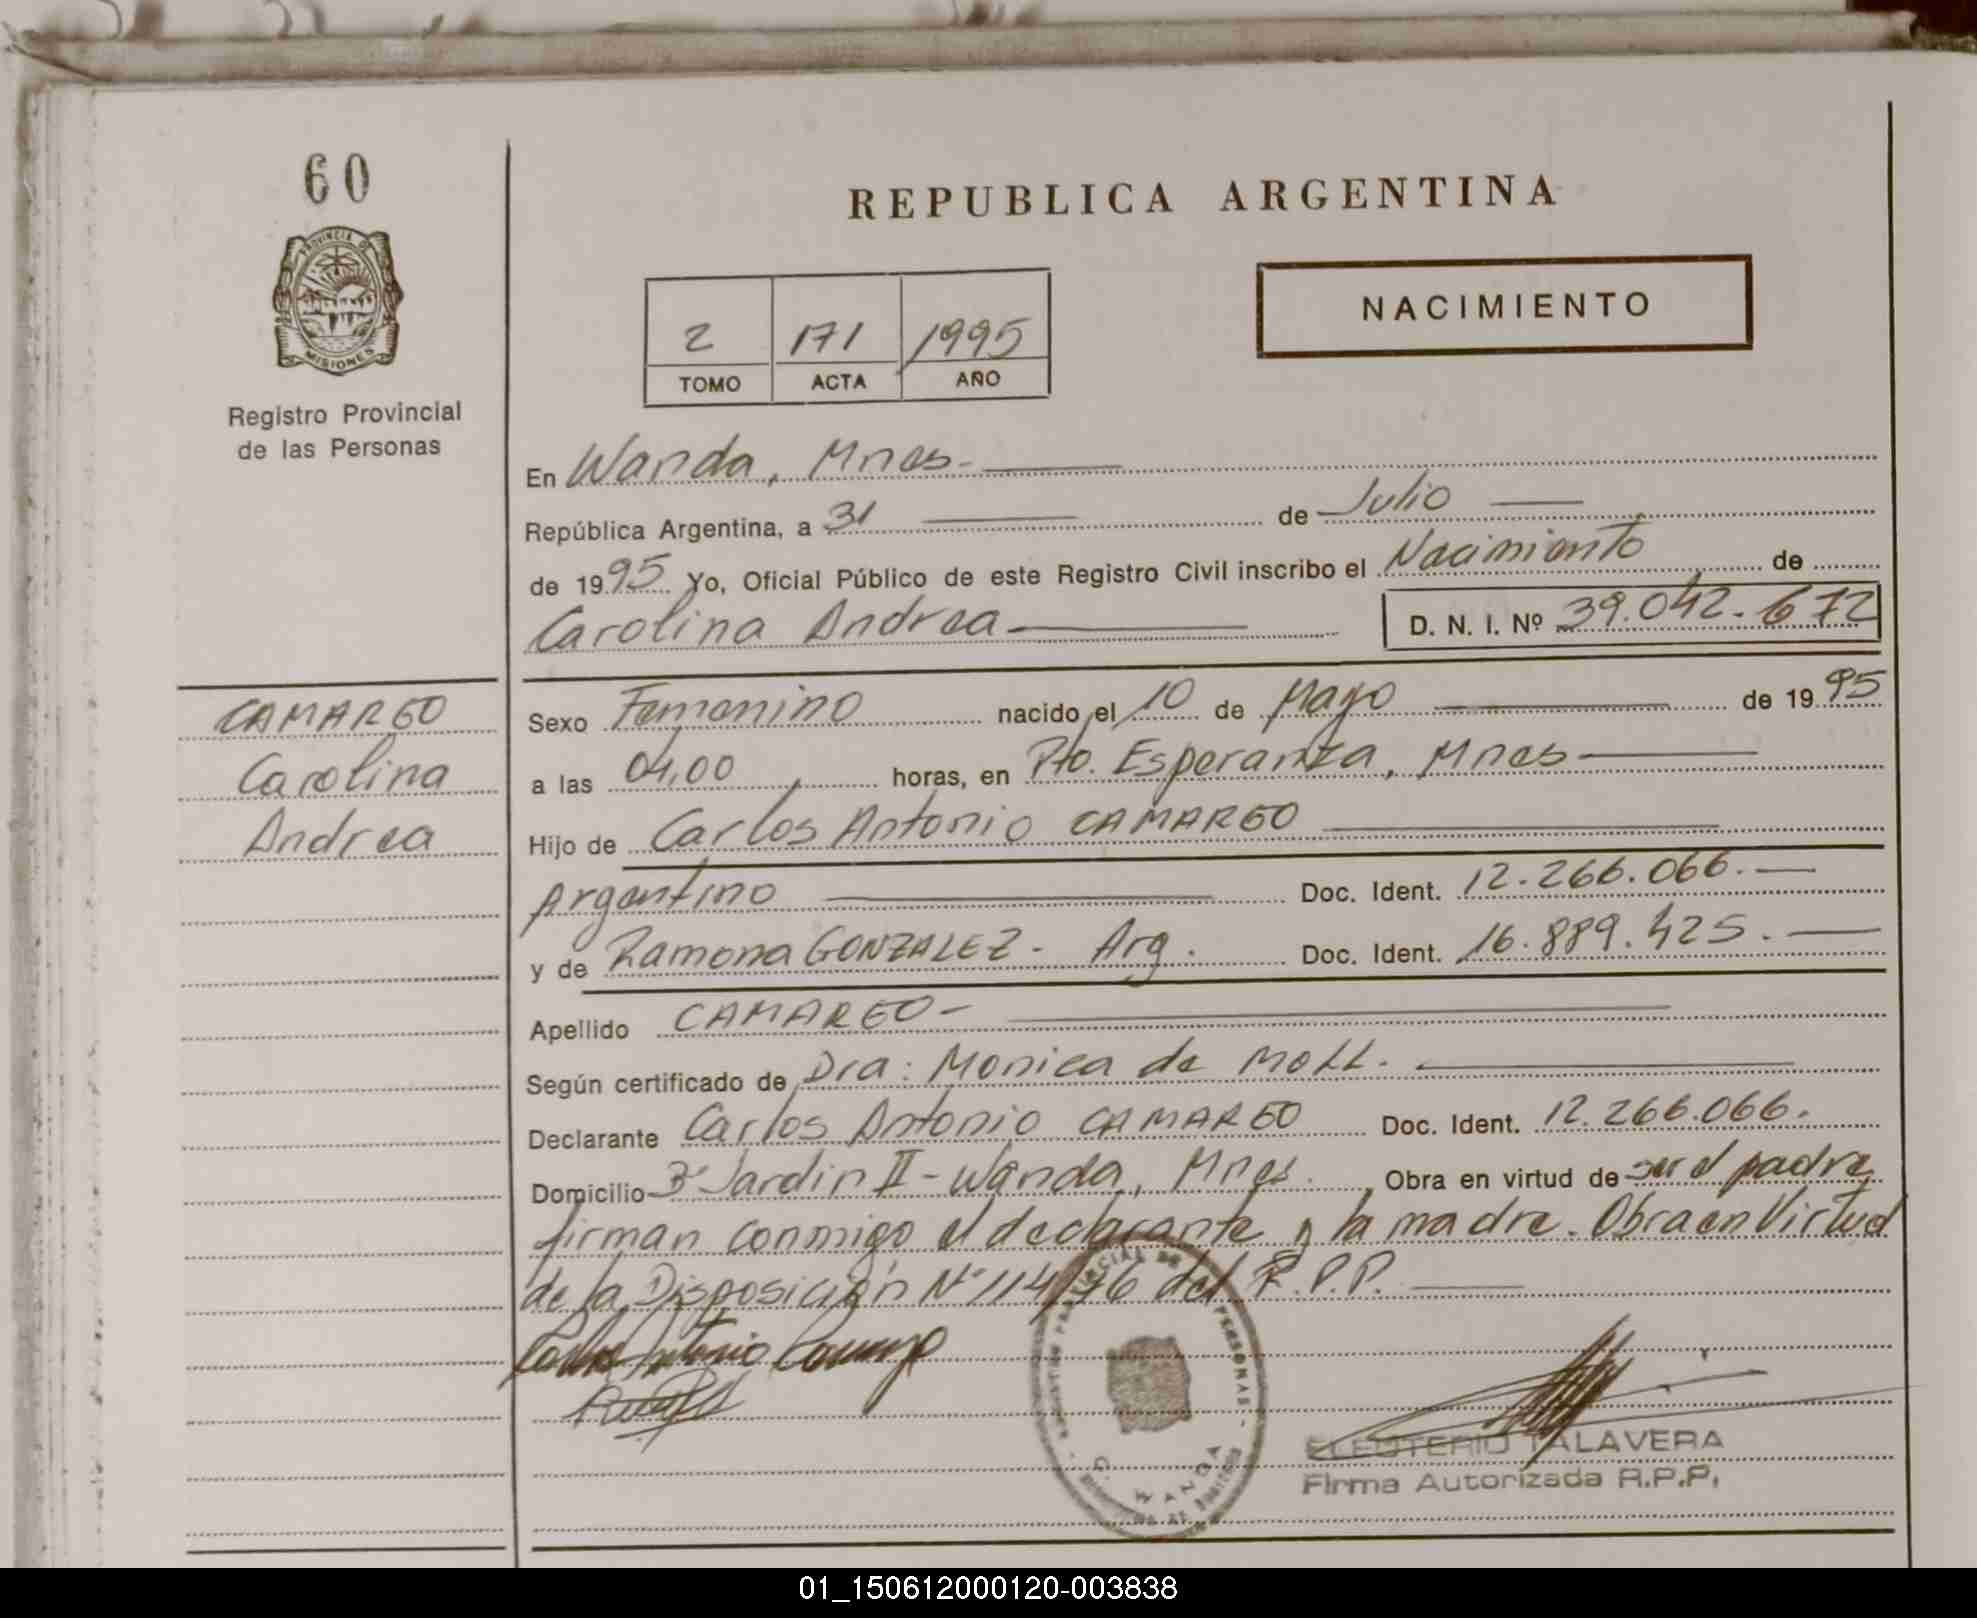 60
PROVINCIA DE
MISIONES
Registro Provincial
de las Personas
REPUBLICA ARGENTINA
2 171 1995
TOMO ACTA AÑO
NACIMIENTO
En Wanda, Mnes.
República Argentina, a 31 de Julio
de 1995 Yo, Oficial Público de este Registro Civil inscribo el Nacimiento de
Carolina Andrea D. N. I. Nº 39.042.672
CAMARGO
Carolina
Andrea
Sexo Femenino nacido el 10 de Mayo de 1995
a las 04,00 horas, en Pto. Esperanza, Mnes
Hijo de Carlos Antonio CAMARGO
Argentino Doc. Ident. 12.266.066.
y de Ramona GONZALEZ - Arg. Doc. Ident. 16.889.425.
Apellido CAMARGO -
Según certificado de Dra: Monica de MOLL.
Declarante Carlos Antonio CAMARGO Doc. Ident. 12.266.066.
Domicilio Bº Jardin II - Wanda, Mnes. Obra en virtud de ser el padre
firman conmigo el declarante y la madre. Obra en Virtud
de la Disposición Nº 114/76 del R.P.P.
Carlos Antonio Camargo
WANDA
ELEUTERIO TALAVERA
Firma Autorizada R.P.P.
01_150612000120-003838